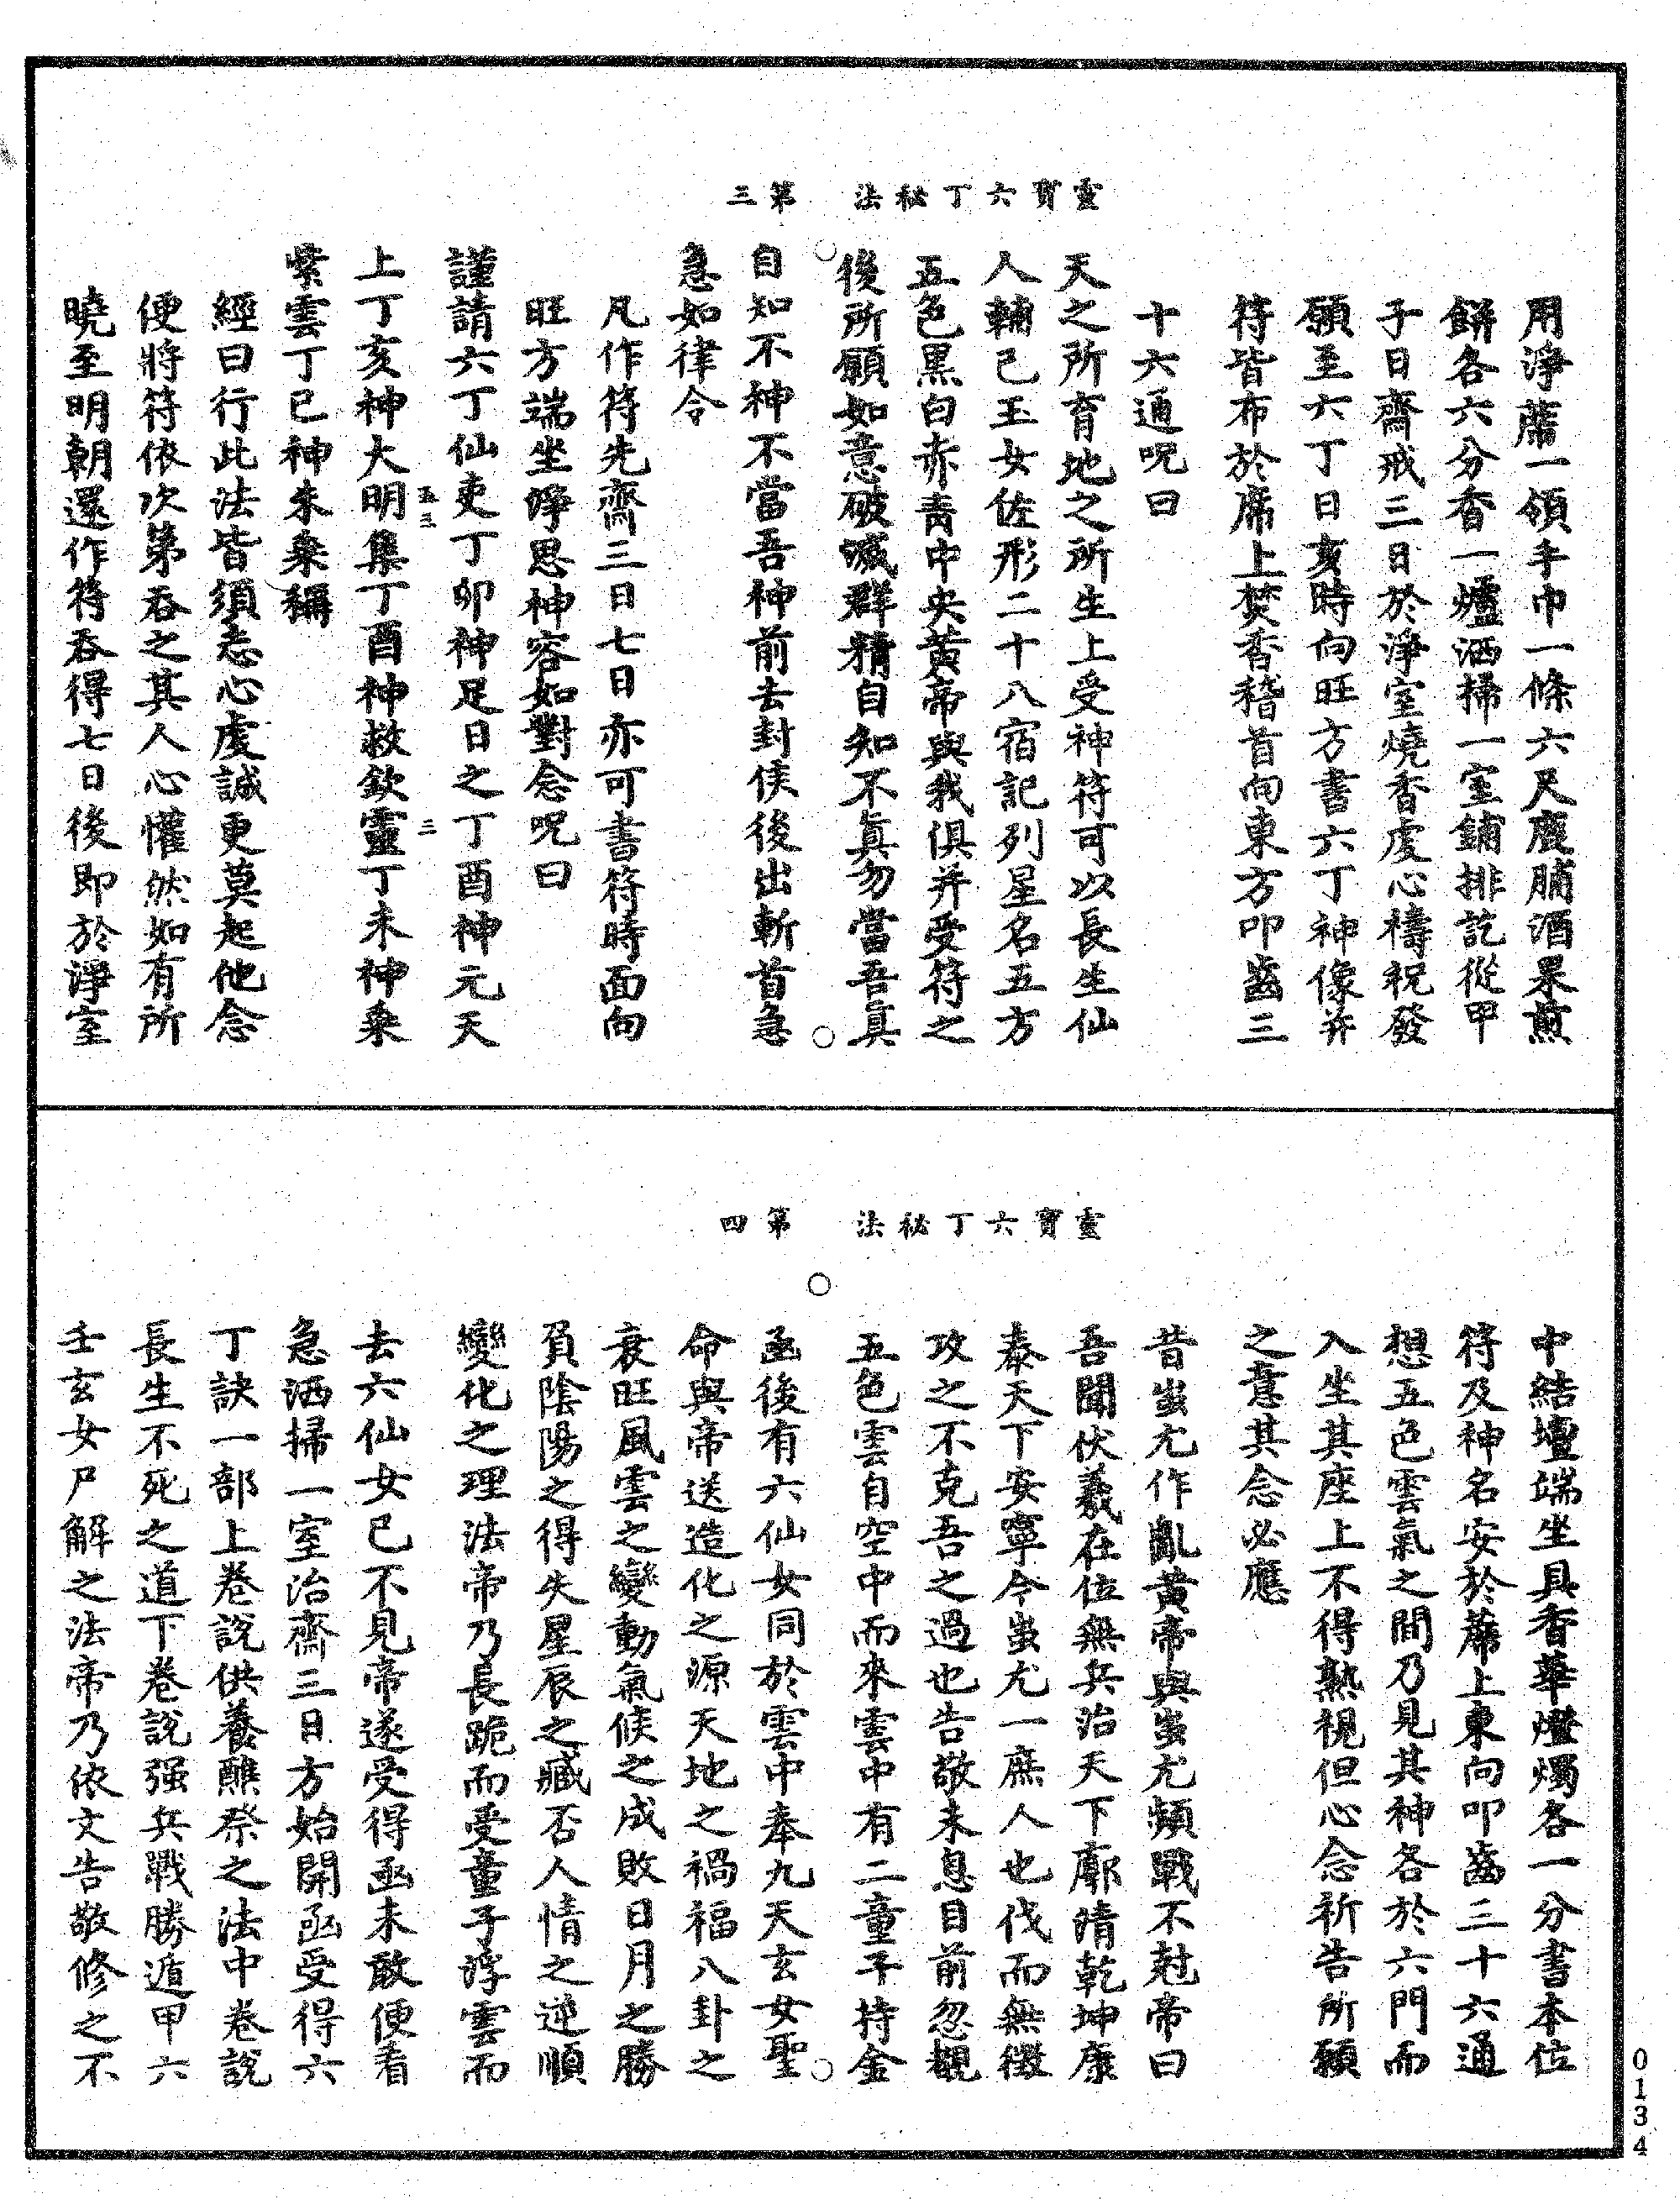 靈寶六丁秘法 第三
用淨蓆一領手巾一條六尺鹿脯酒果煎
餅各六分香一爐洒掃一室鋪排訖從甲
子日齋戒三日於淨室燒香虔心禱祝發
願至六丁日亥時向旺方書六丁神像并
符皆布於席上焚香稽首向東方叩齒三
十六通呪曰
天之所育地之所生上受神符可以長生仙
人輔己玉女佐形二十八宿記列星名五方
五色黑白赤青中央黃帝與我俱并受符之
後所願如意破碱群精自知不真勿當吾真
自知不神不當吾神前去封侯後出斬首急
急如律令
凡作符先齋三日七日亦可書符時面向
旺方端坐淨思神容如對念呪曰
謹請六丁仙吏丁卯神足日之丁酉神元天
五三
三
上丁亥神大明集丁酉神救欽靈丁未神乘
紫雲丁巳神朱乘稱
經曰行此法皆須志心虔誠更莫起他念
便將符依次第吞之其人心懽然如有所
曉至明朝還作符吞得七日後即於淨室
靈寶六丁秘法 第四
中結壇端坐具香華燈燭各一分書本位
符及神名安於蓆上東向叩齒三十六通
想五色雲氣之間乃見其神各於六門而
入坐其座上不得熟視但心念祈告所願
之意其念必應
昔蚩尤作亂黃帝與蚩尤頻戰不尅帝曰
吾聞伏羲在位無兵治天下廓清乾坤康
泰天下安寧今蚩尤一庶人也伐而無徵
攻之不克吾之過也告敬未息目前忽覩
五色雲自空中而來雲中有二童子持金
函後有六仙女同於雲中奉九天玄女聖
命與帝送造化之源天地之禍福八卦之
衰旺風雲之變動氣候之成敗日月之勝
負陰陽之得失星辰之臧否人情之逆順
變化之理法帝乃長跪而受童子浮雲而
去六仙女已不見帝遂受得函未敢便看
急洒掃一室治齋三日方始開函受得六
丁訣一部上卷說供養醮祭之法中卷說
長生不死之道下卷說强兵戰勝遁甲六
壬玄女尸解之法帝乃依文告敬修之不
0134